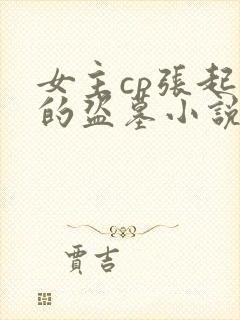 女主cp張起
的盜墓小說
賈吉